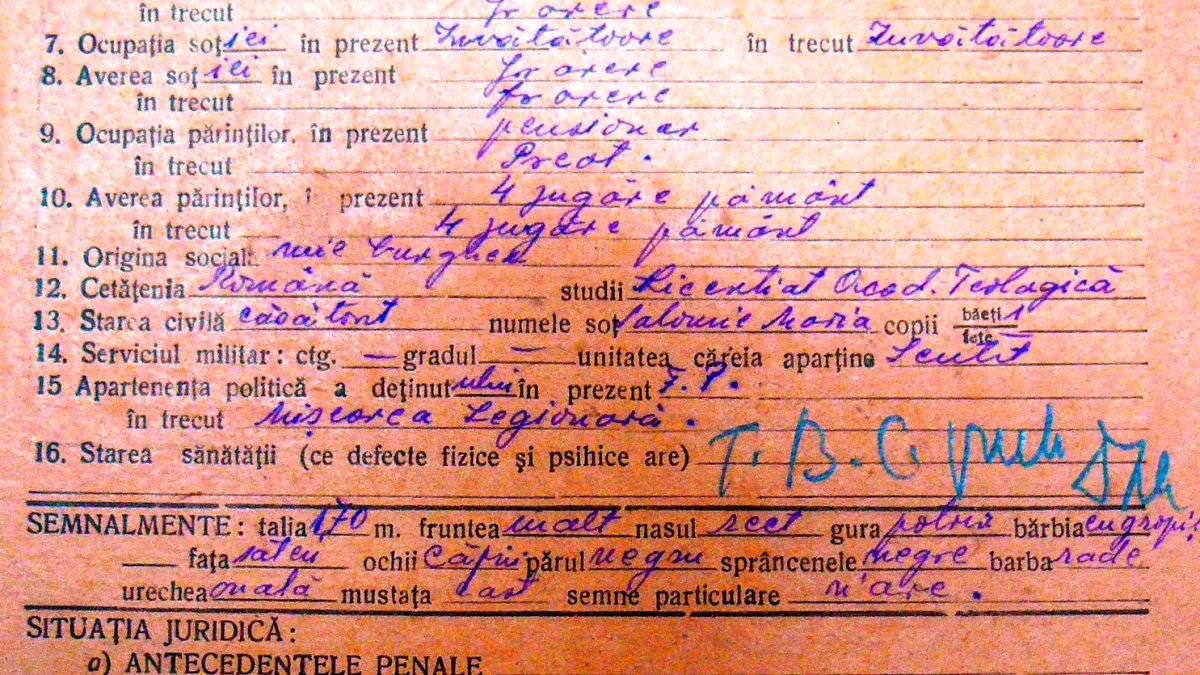 în trecut
7. Ocupația soției în prezent Învățătoare în trecut Învățătoare
8. Averea soției în prezent
în trecut
9. Ocupația părinților, în prezent pensionar
în trecut Preot.
10. Averea părinților, î prezent 4 jugăre pământ
în trecut 4 jugăre pământ
11. Origina social: mic burghez
12. Cetățenia Română studii Licențiat Acad. Teologică
13. Starea civilă căsătorit numele soț Maria copii băeți 1 fete
14. Serviciul militar: ctg. — gradul — unitatea căreia aparține Scutit
15 Apartenența politică a deținutului în prezent F.P.
în trecut Mișcarea Legionară.
16. Starea sănătății (ce defecte fizice și psihice are) T.B.C.
SEMNALMENTE: talia 170 m. fruntea înalt nasul rect gura potriv bărbia cu gropiț
fața ochii Căprui părul negru sprâncenele negre barba rade
urechea ovală mustața semne particulare n'are.
SITUAȚIA JURIDICĂ:
a) ANTECEDENTELE PENALE